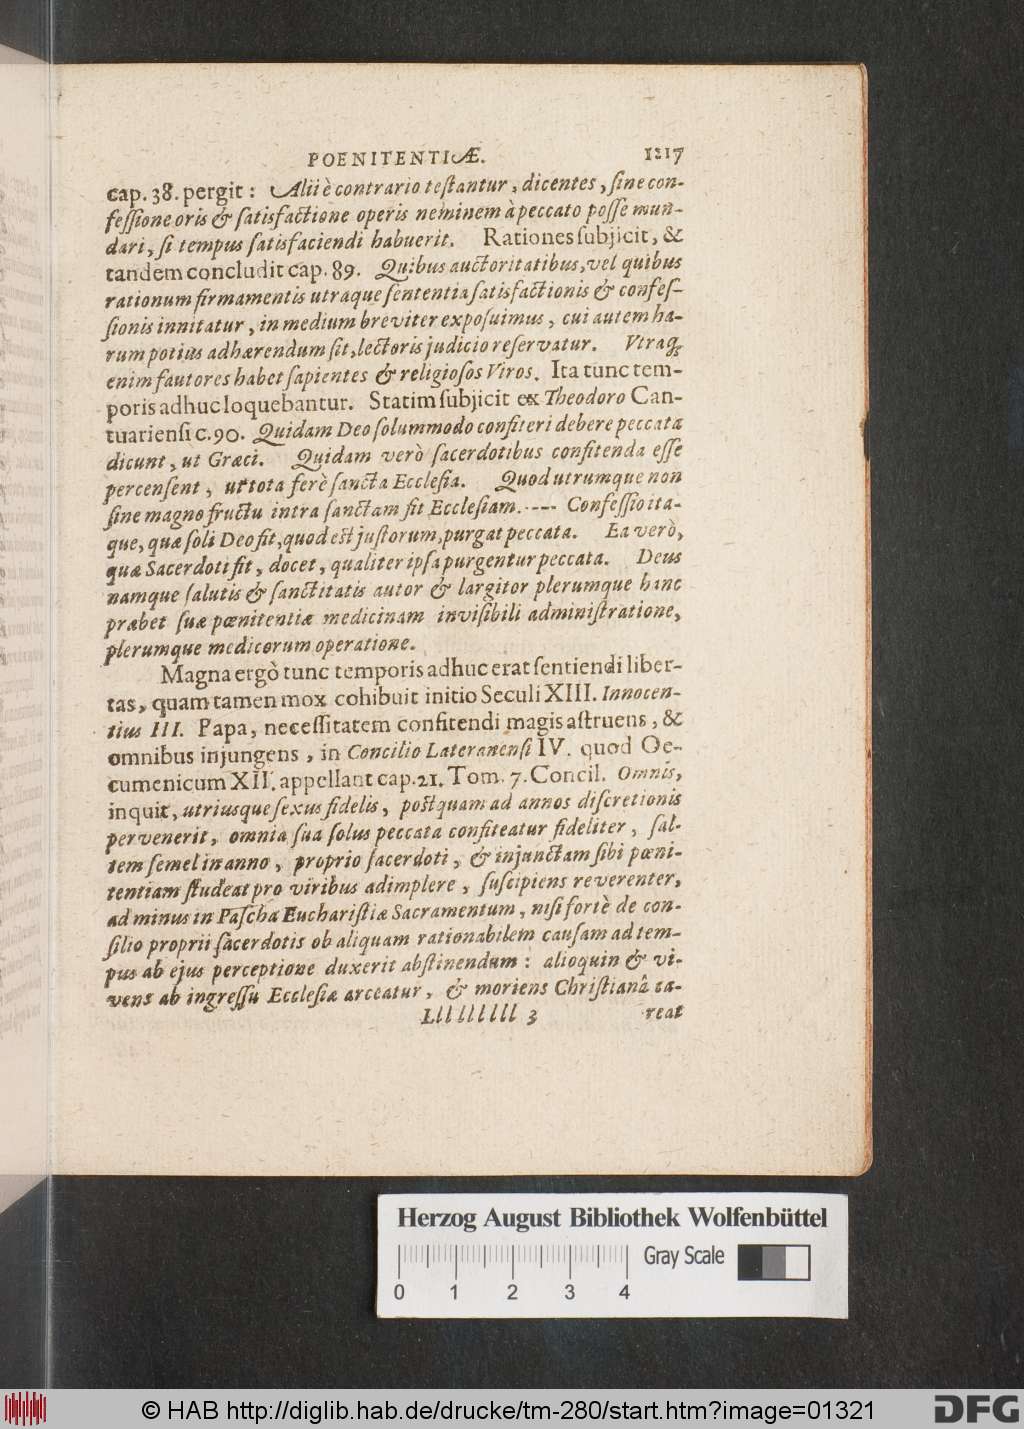 POENITENTIÆ. 1217
cap. 38. pergit: Alii è contrario teſtantur, dicentes, ſine con-
feſſione oris & ſatisfactione operis neminem à peccato poſſe mun-
dari, ſi tempus ſatisfaciendi habuerit. Rationes ſubjicit, &
tandem concludit cap. 89. Quibus auctoritatibus, vel quibus
rationum firmamentis utraque ſententia ſatisfactionis & confeſ-
ſionis innitatur, in medium breviter expoſuimus, cui autem ha-
rum potius adhærendum ſit, lectoris judicio reſervatur. Vtraq;
enim fautores habet ſapientes & religioſos Viros. Ita tunc tem-
poris adhuc loquebantur. Statim ſubjicit ex Theodoro Can-
tuarienſi c. 90. Quidam Deo ſolummodo confiteri debere peccata
dicunt, ut Græci. Quidam verò ſacerdotibus confitenda eſſe
percenſent, ut tota ferè ſancta Eccleſia. Quod utrumque non
ſine magno fructu intra ſanctam fit Eccleſiam. ---- Confeſſio ita-
que, quæ ſoli Deo fit, quod eſt juſtorum, purgat peccata. Ea verò,
quæ Sacerdoti fit, docet, qualiter ipſa purgentur peccata. Deus
namque ſalutis & ſanctitatis autor & largitor plerumque hanc
præbet ſuæ pœnitentiæ medicinam inviſibili adminiſtratione,
plerumque medicorum operatione.
Magna ergò tunc temporis adhuc erat ſentiendi liber-
tas, quam tamen mox cohibuit initio Seculi XIII. Innocen-
tius III. Papa, neceſſitatem confitendi magis aſtruens, &
omnibus injungens, in Concilio Lateranenſi IV. quod Oe-
cumenicum XII. appellant cap. 21. Tom. 7. Concil. Omnis,
inquit, utriusque ſexus fidelis, poſtquam ad annos diſcretionis
pervenerit, omnia ſua ſolus peccata confiteatur fideliter, ſal-
tem ſemel in anno, proprio ſacerdoti, & injunctam ſibi pœni-
tentiam ſtudeat pro viribus adimplere, ſuſcipiens reverenter,
ad minus in Paſcha Euchariſtiæ Sacramentum, niſi fortè de con-
ſilio proprii ſacerdotis ob aliquam rationabilem cauſam ad tem-
pus ab ejus perceptione duxerit abſtinendum: alioquin & vi-
vens ab ingreſſu Eccleſiæ arceatur, & moriens Chriſtianâ ca-
Lll lll lll 3 reat
Herzog August Bibliothek Wolfenbüttel
Gray Scale
0 1 2 3 4
© HAB http://diglib.hab.de/drucke/tm-280/start.htm?image=01321
DFG